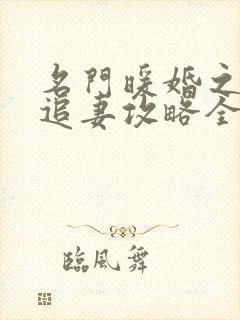 名門暖婚之
追妻攻略全
臨風舞